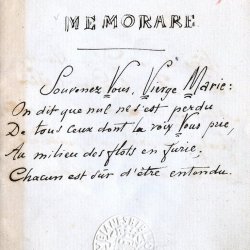 MEMORARE
Souvenez Vous, Vierge Marie:
On dit que nul ne s'est perdu
De tous ceux dont la voix Vous prie,
Au milieu des flots en furie,
Chacun est sûr d'être entendu.